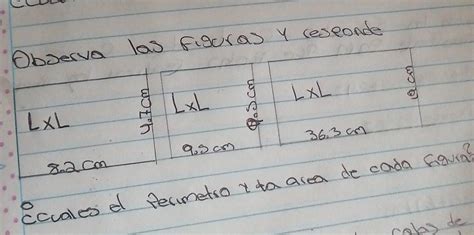 Observa las figuras y responde
LxL
4.7cm
8.2 cm
LxL
9.5 cm
LxL
9 cm
36.3 cm
¿Cuales el perimetro y ta area de cada figura?